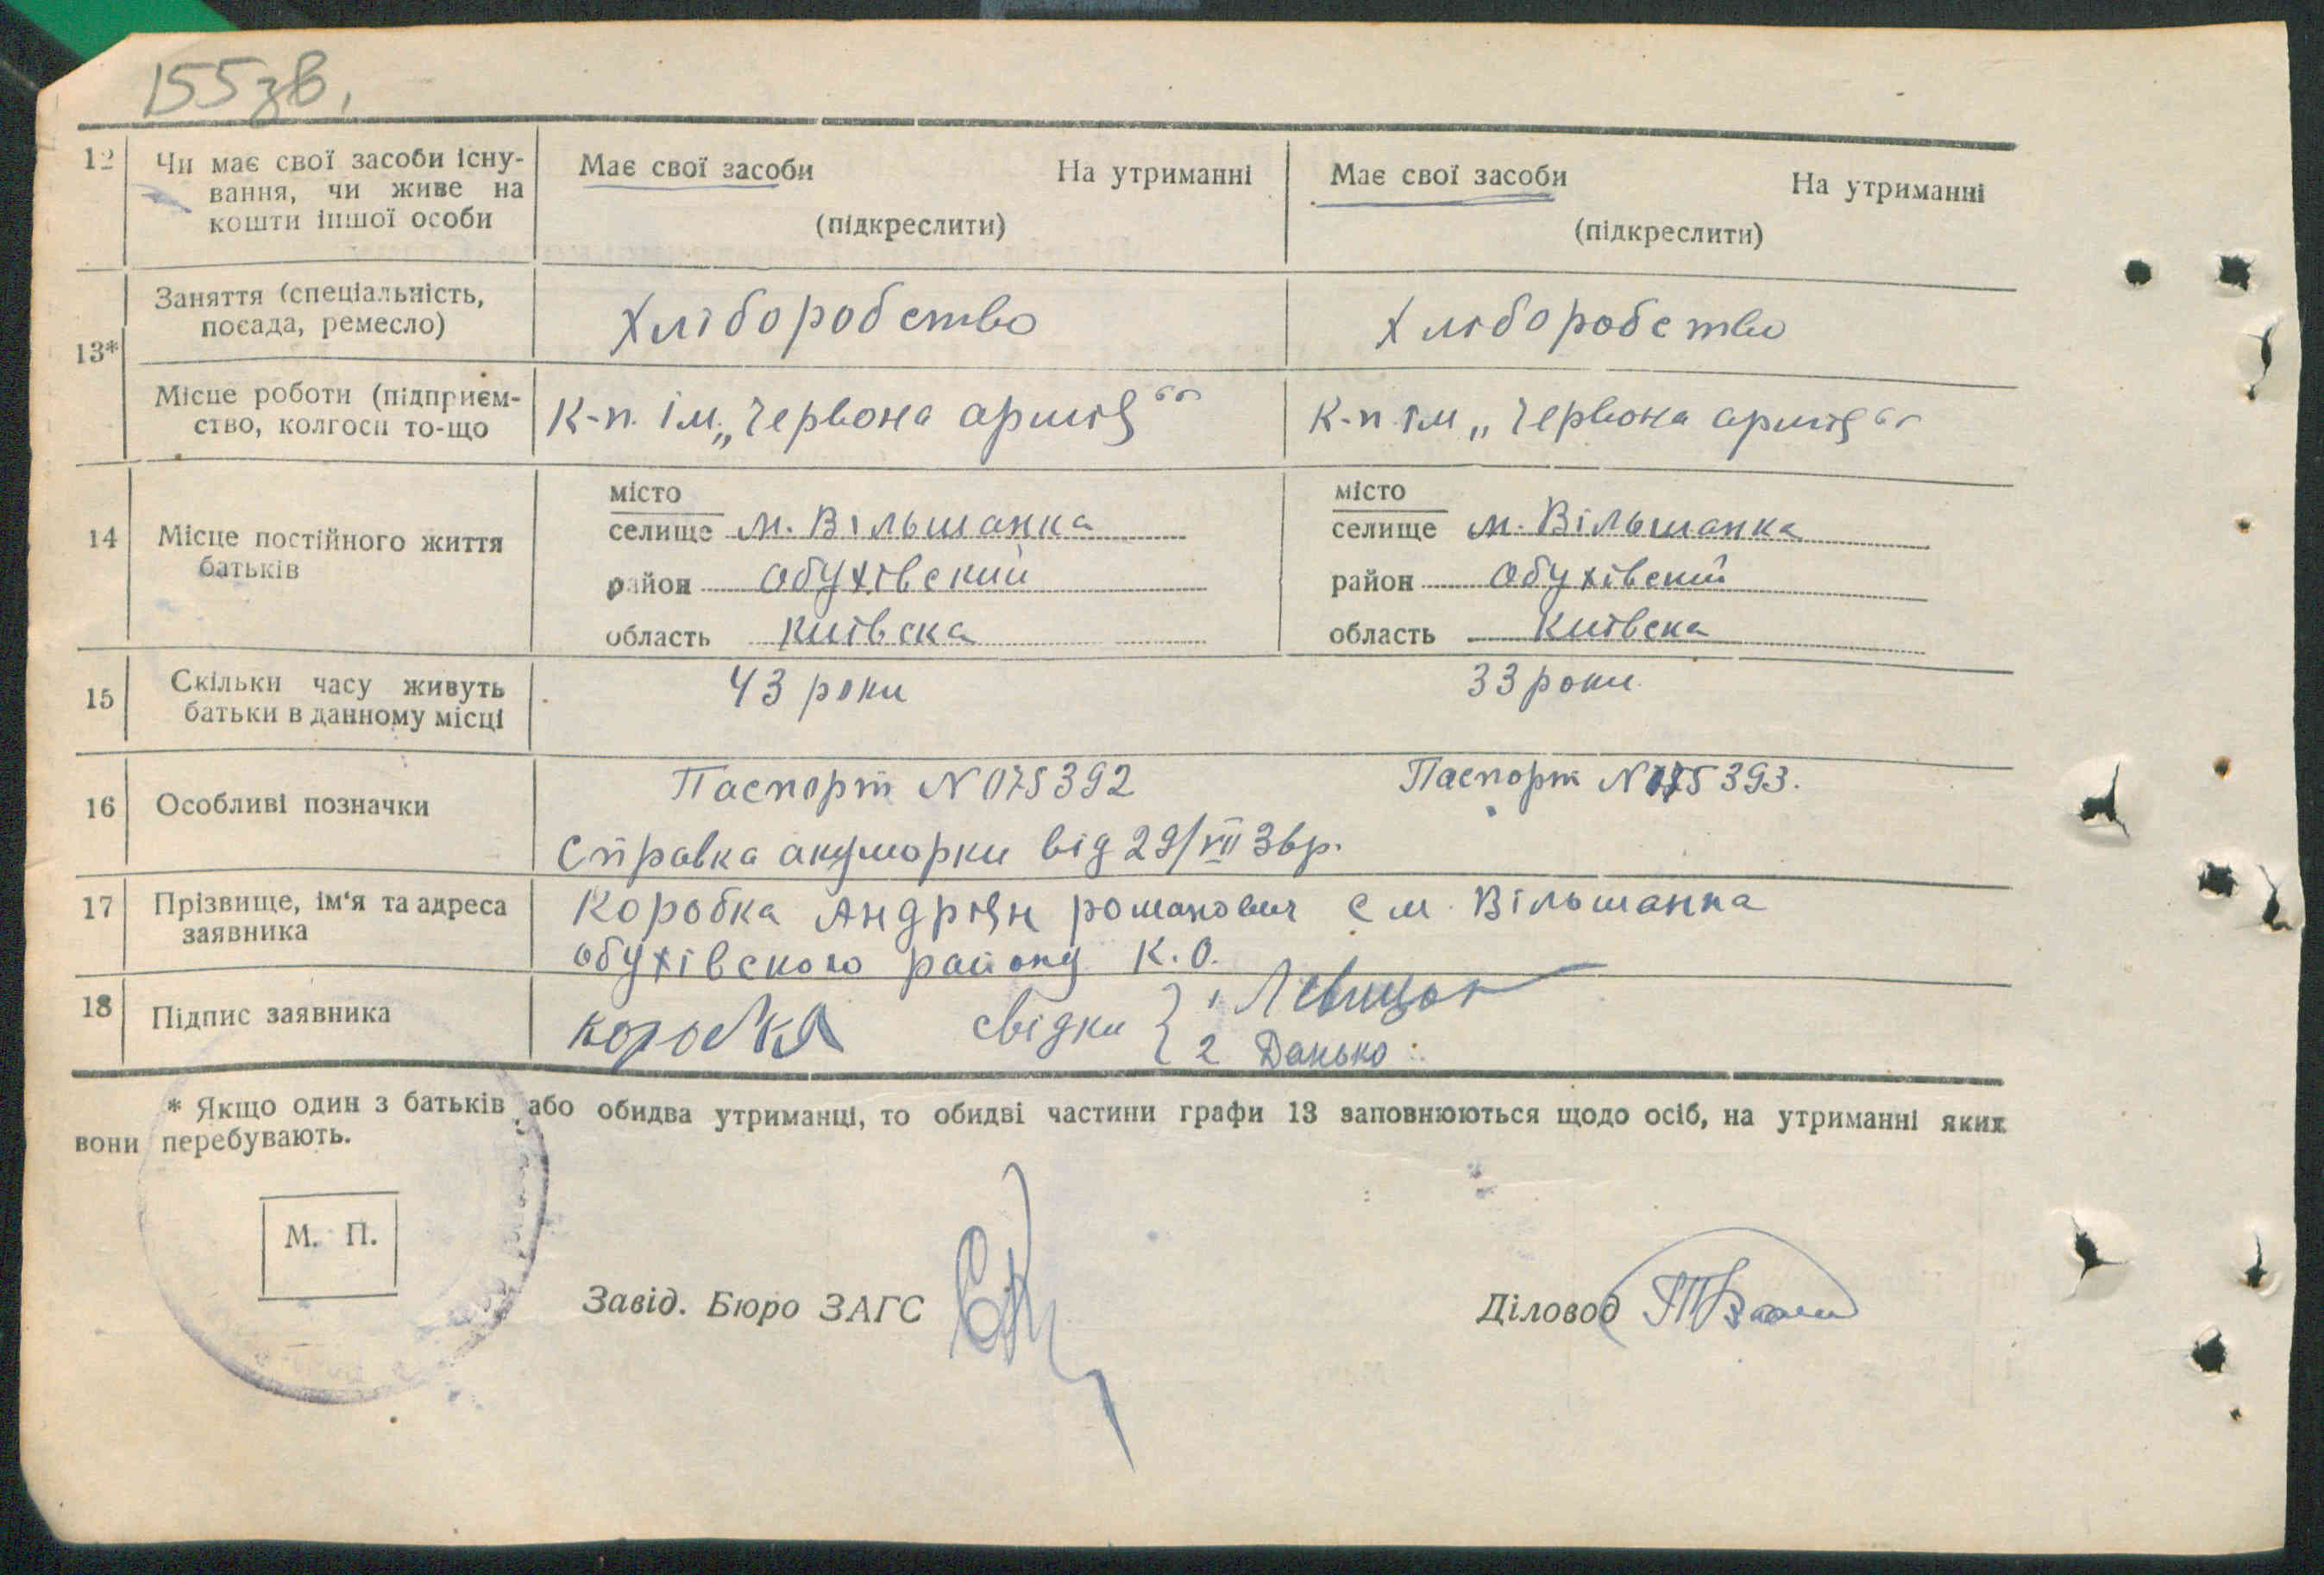 155зв.
12 Чи має свої засоби існу-
вання, чи живе на
кошти іншої особи
Має свої засоби На утриманні
(підкреслити)
Має свої засоби На утриманні
(підкреслити)
13*
Заняття (спеціальність,
посада, ремесло)
Хліборобство
Хліборобство
Місце роботи (підприєм-
ство, колгосп то-що
К-п. ім. „Червона армія“
К-п ім „Червона армія“
14 Місце постійного життя
батьків
місто
селище м. Вільшанка
район Обухівский
область Київска
місто
селище м. Вільшанка
район Обухівский
область Київска
15 Скільки часу живуть
батьки в данному місці
43 роки
33 роки
16 Особливі позначки
Паспорт N 075392 Паспорт N 075393.
Справка акушорки від 29/VII 36р.
17 Прізвище, ім'я та адреса
заявника
Коробка Андріян романович с м. Вільшанка
обухівского району К.О.
18 Підпис заявника
коробка свідки 1
2 Данько
* Якщо один з батьків або обидва утриманці, то обидві частини графи 13 заповнюються щодо осіб, на утриманні яких
вони перебувають.
М. П.
Завід. Бюро ЗАГС
Діловод